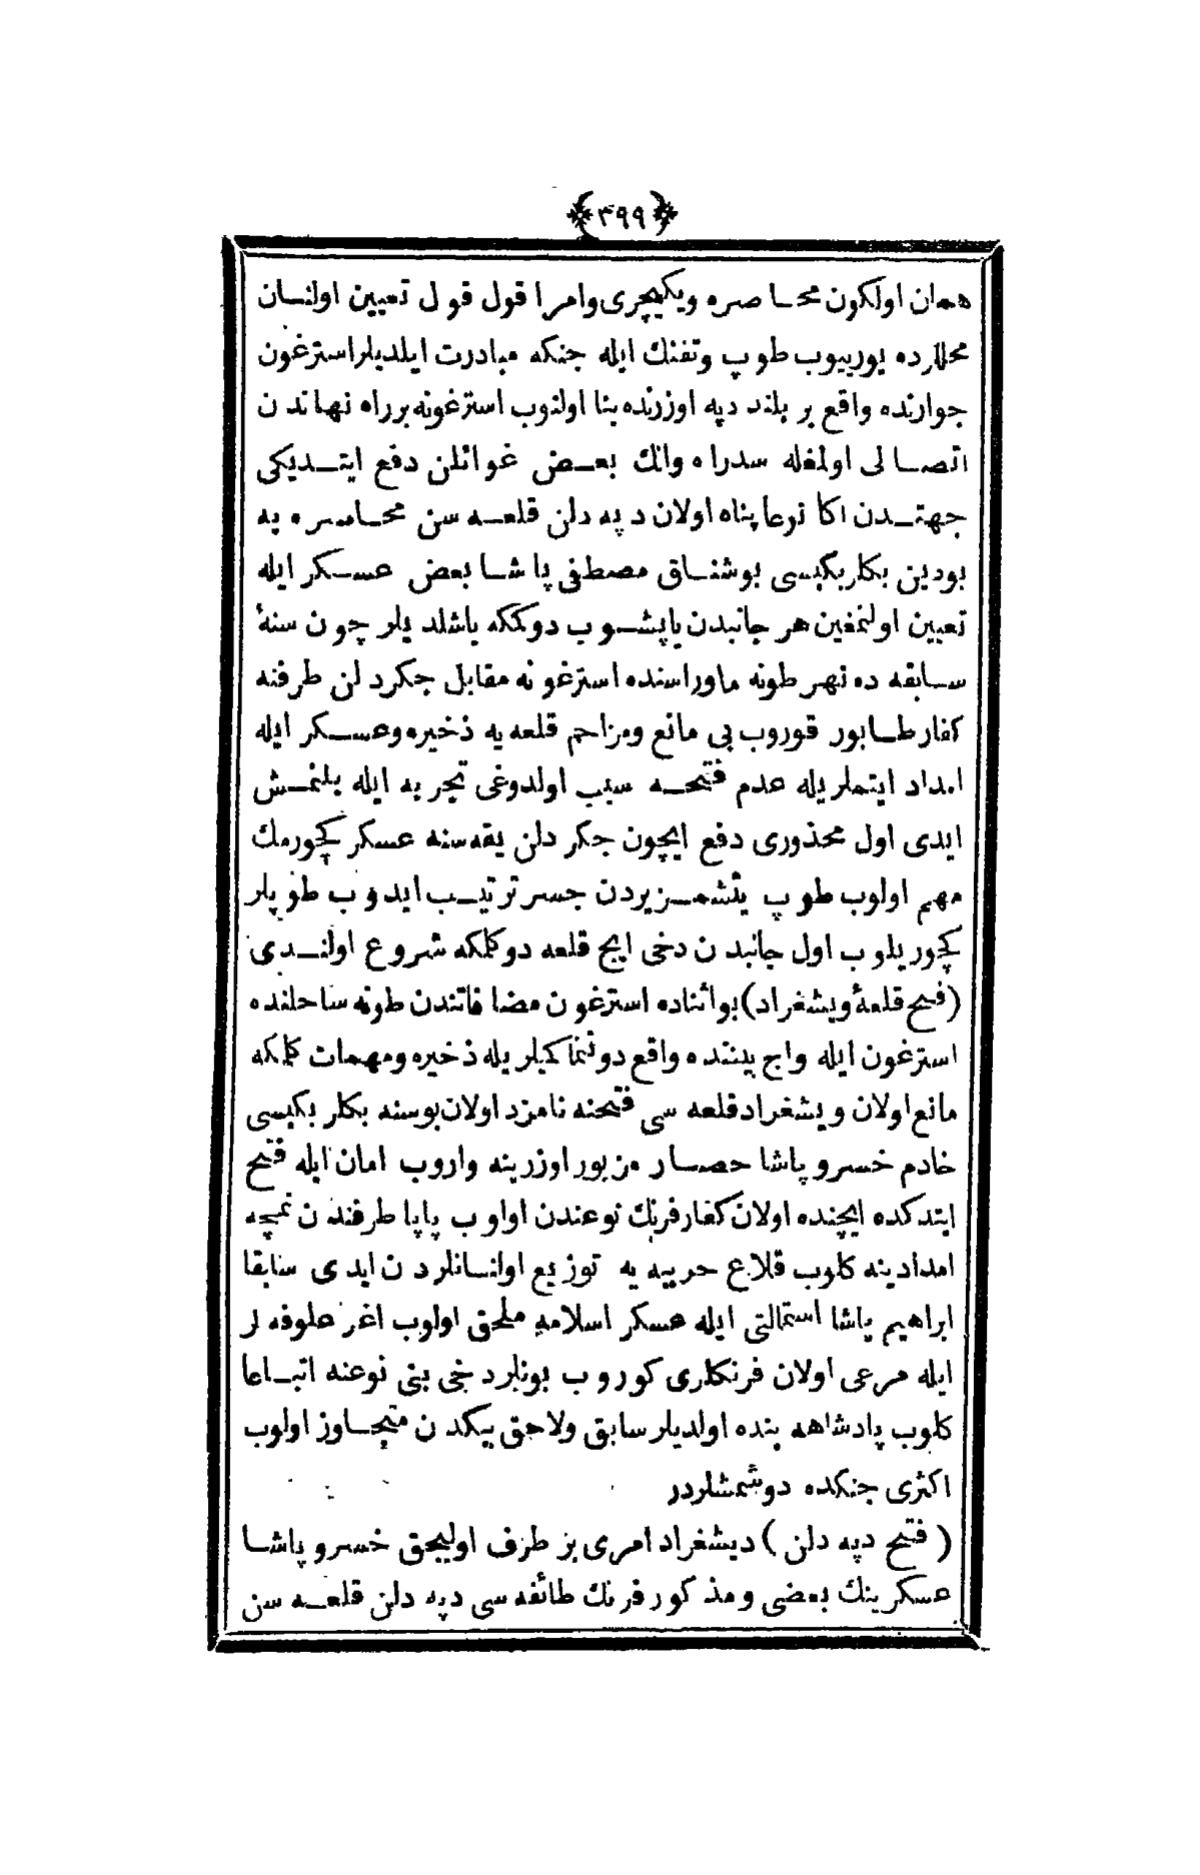 ﴿٣٩٩﴾
همان اولكون محاصره ويكيچرى وامرا قول قول تعيين اولنان
محللرده يوريیوب طوپ وتفنك ايله جنكه مبادرت ايلديلر استرغون
جوارنده واقع بر بلند دپه اوزرنده بنا اولنوب استرغونه بر راه نهاندن
اتصالى اولمغله سدراه وانك بعض غوائلن دفع ايتديكى
جهتدن اكا نوعا پناه اولان دپه دلن قلعه سن محاصره يه
بودين بكلربكيسى بوشناق مصطفى پاشا بعض عسكر ايله
تعيين اولنمغين هر جانبدن ياپشوب دوكمكه باشلديلر چون سنۀ
سابقه ده نهر طونه ماوراسنده استرغونه مقابل جكردلن طرفنه
كفار طابور قوروب بى مانع ومزاحم قلعه يه ذخيره وعسكر ايله
امداد ايتملريله عدم فتحه سبب اولدوغى تجربه ايله بلنمش
ايدى اول محذورى دفع ايچون جكر دلن يقه سنه عسكر كچورمك
مهم اولوب طوپ يتشمز يردن جسر ترتيب ايدوب طوپلر
كچوريلوب اول جانبدن دخى ايچ قلعه دوكلمكه شروع اولندى
(فتح قلعۀ ويشغراد) بو اثناده استرغون مضافاتندن طونه ساحلنده
استرغون ايله واچ بيننده واقع دوننما كميلريله ذخيره ومهمات كلمكه
مانع اولان ويشغراد قلعه سى فتحنه نامزد اولان بوسنه بكلربكيسى
خادم خسرو پاشا حصار مزبور اوزرينه واروب امان ايله فتح
ايتدكده ايچنده اولان كفار فرنك نوعندن اولوب پاپا طرفندن نمچه
امدادينه كلوب قلاع حربيه يه توزيع اولنانلردن ايدى سابقا
ابراهيم پاشا استمالتى ايله عسكر اسلامه ملحق اولوب اغر علوفه لر
ايله مرعى اولان فرنكلرى كوروب بونلر دخى بنى نوعنه اتباعا
كلوب پادشاهه بنده اولديلر سابق ولاحق بيكدن متجاوز اولوب
اكثرى جنكده دوشمشلردر
(فتح دپه دلن) ديشغراد امرى بر طرف اوليجق خسرو پاشا
عسكرينك بعضى ومذكور فرنك طائفه سى دپه دلن قلعه سن